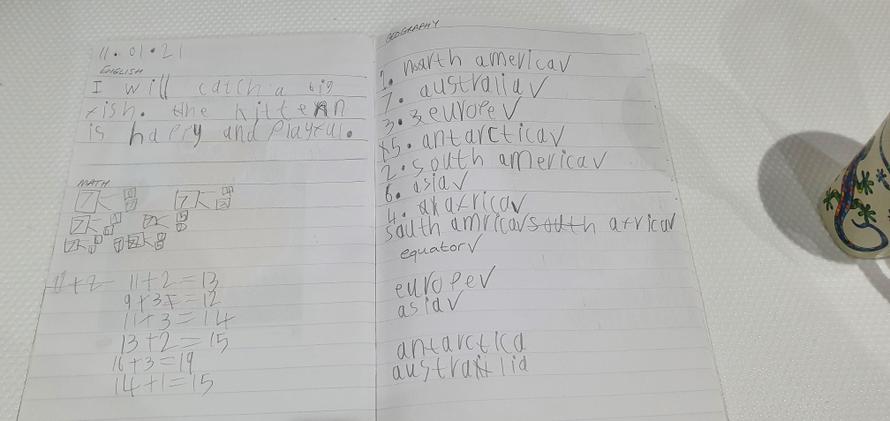 11.01.21
ENGLISH
I will catch a big
fish. the kitten
is happy and playful.
MATH
7
7
7
11+2 11+2=13
9+3=12
11+3=14
13+2=15
16+3=19
14+1=15
GEOGRAPHY
1. north america✓
7. australia✓
3. europe✓
5. antarctica✓
2. south america✓
6. asia✓
4. africa✓
south amrica✓ south africa✓
equator✓
europe✓
asia✓
antarctica
australia